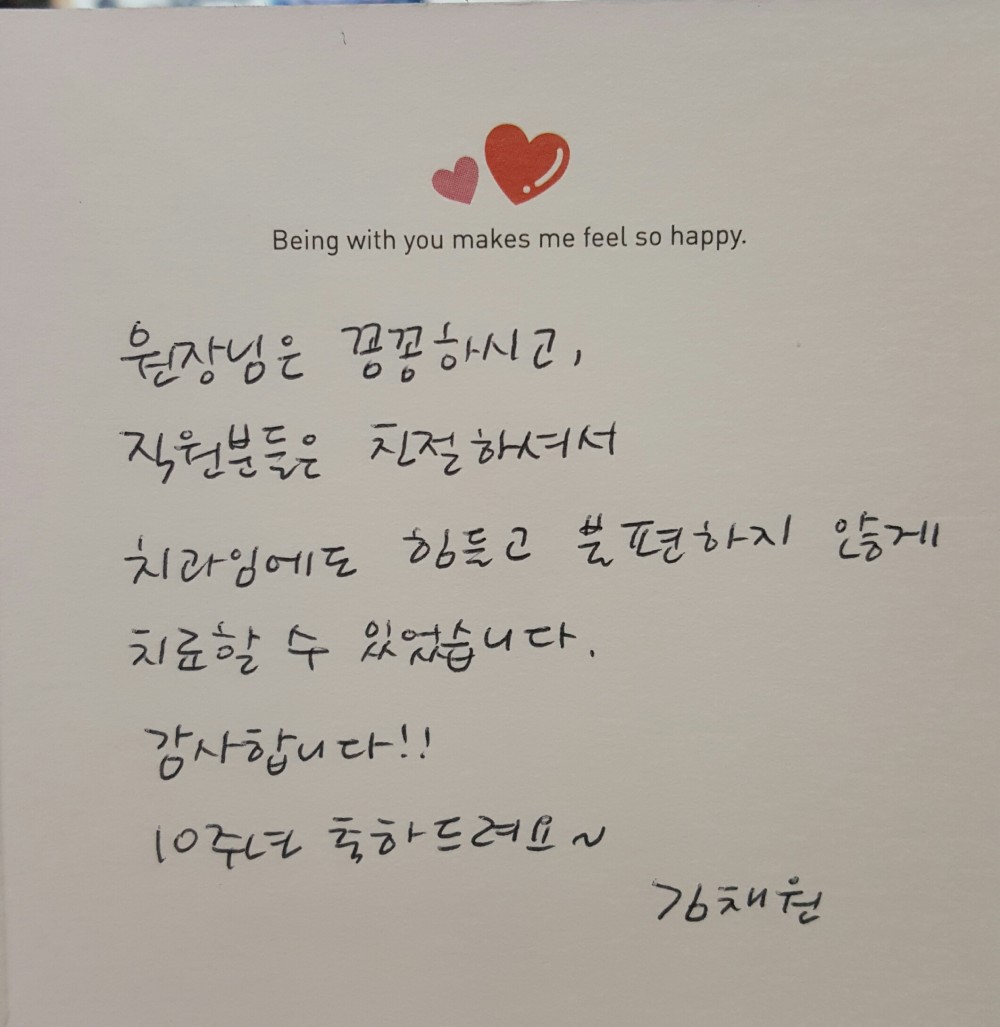 Being with you makes me feel so happy.
원장님은 꼼꼼하시고,
직원분들은 친절하셔서
치과임에도 힘들고 불편하지 않게
치료할 수 있었습니다.
감사합니다!!
10주년 축하드려요~
김채원